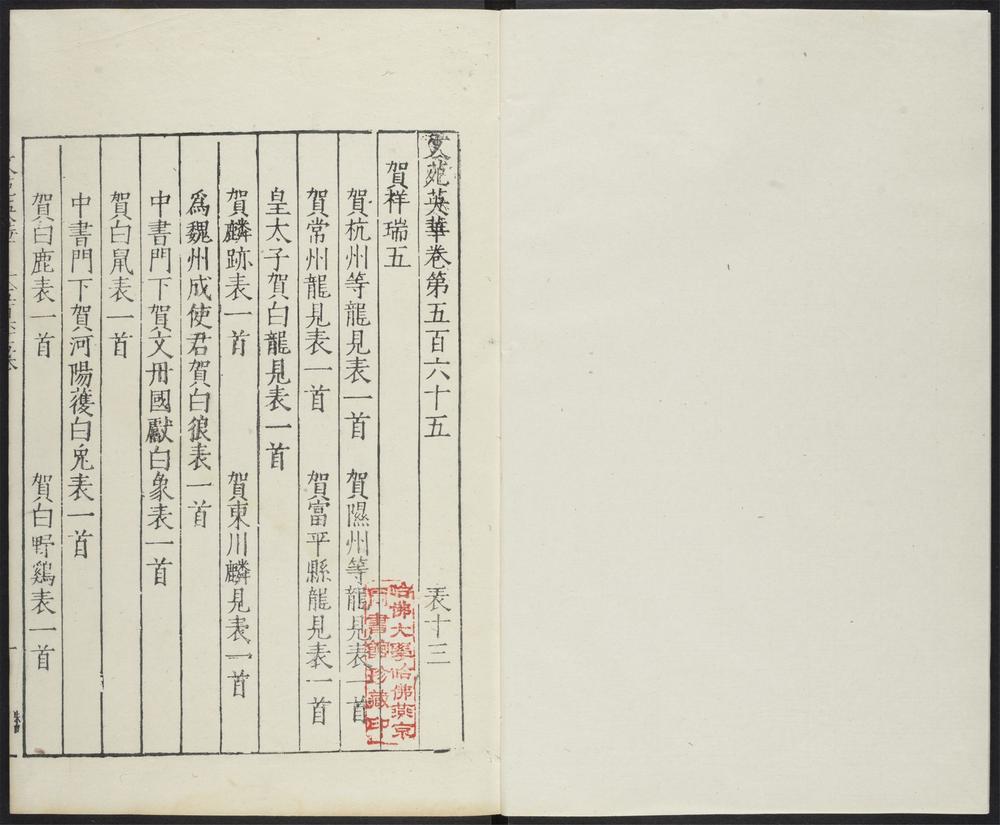 文苑英華卷第五百六十五 表十三
賀祥瑞五
賀杭州等龍見表一首 賀隰州等龍見表一首
賀常州龍見表一首 賀富平縣龍見表一首
皇太子賀白龍見表一首
賀麟跡表一首 賀東川麟見表一首
爲魏州成使君賀白狼表一首
中書門下賀文冊國獻白象表一首
賀白鼠表一首
中書門下賀河陽獲白兎表一首
賀白鹿表一首 賀白野鷄表一首
一
哈佛大學哈佛燕京
圖書館珍藏印